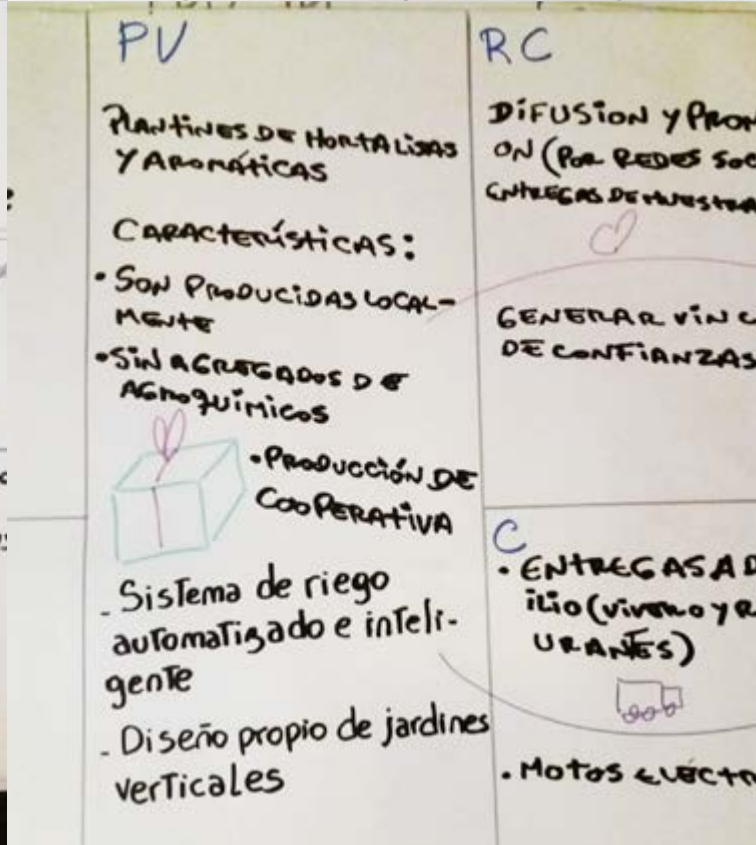 PV
PLANTINES DE HORTALISAS
Y AROMÁTICAS
CARACTERÍSTICAS:
• SON PRODUCIDAS LOCAL-
MENTE
• SIN AGREGADOS DE
AGROQUÍMICOS
• PRODUCCIÓN DE
COOPERATIVA
- Sistema de riego
automatizado e inteli-
gente
- Diseño propio de jardines
verticales
RC
DIFUSION Y PROM
ON (POR REDES SOC
ENTREGAS DE MUESTRA
GENERAR VINC
DE CONFIANZAS
C
• ENTREGAS A D
ILIO (VIVERO Y R
URANTES)
• MOTOS ELÉCTR